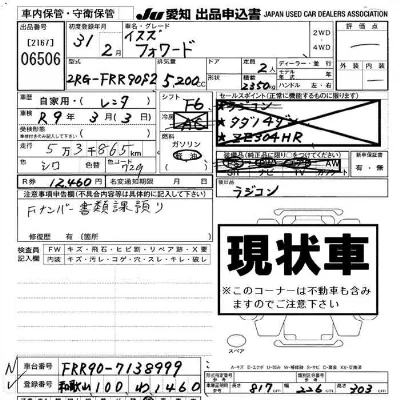 車内保管・守衛保管
JU 愛知 出品申込書 JAPAN USED CAR DEALERS ASSOCIATION
出品番号
[2167]
06506
初度登録年月
31年2月
車名・グレード
イスズ
フォワード
2WD
4WD
評価点
型式
2RG-FRR90S2
排気量
5200cc
ドア 形状
定員
2人
積載
2350kg
ディーラー・並行
モデル年式
左H・右H
外装 内装
車歴
自家用・レンタ
シフト
F6
冷房
AC
セールスポイント(正常に機能するものに限ります)
ラジコン
★タダノタダノ
★ZE304HR
車検
R9年3月3日
受検形態
走行
5万3千865km
燃料
ガソリン
軽油
色
シロ
色替
カラーNo.
729
新車保証書
有・無
AW
SR ナビ TV
R券
12,460円
名変期限
後日品
ラジコン
注意事項申告欄(不具合内容等は具体的に記入して下さい)
Fナンバー書類課預り
修復歴 有・(箇所)
検査員記入欄
FW キズ・飛石・ヒビ割・リペア跡・X要
内装 キズ・汚レ・コゲ・穴・スレ・キレ・破レ
現状車
※このコーナーは不動車も含みますのでご注意下さい
スペア
車台番号
FRR90-7138999
登録番号
和歌山100わ1460
長さ 817 幅 226 高さ 303